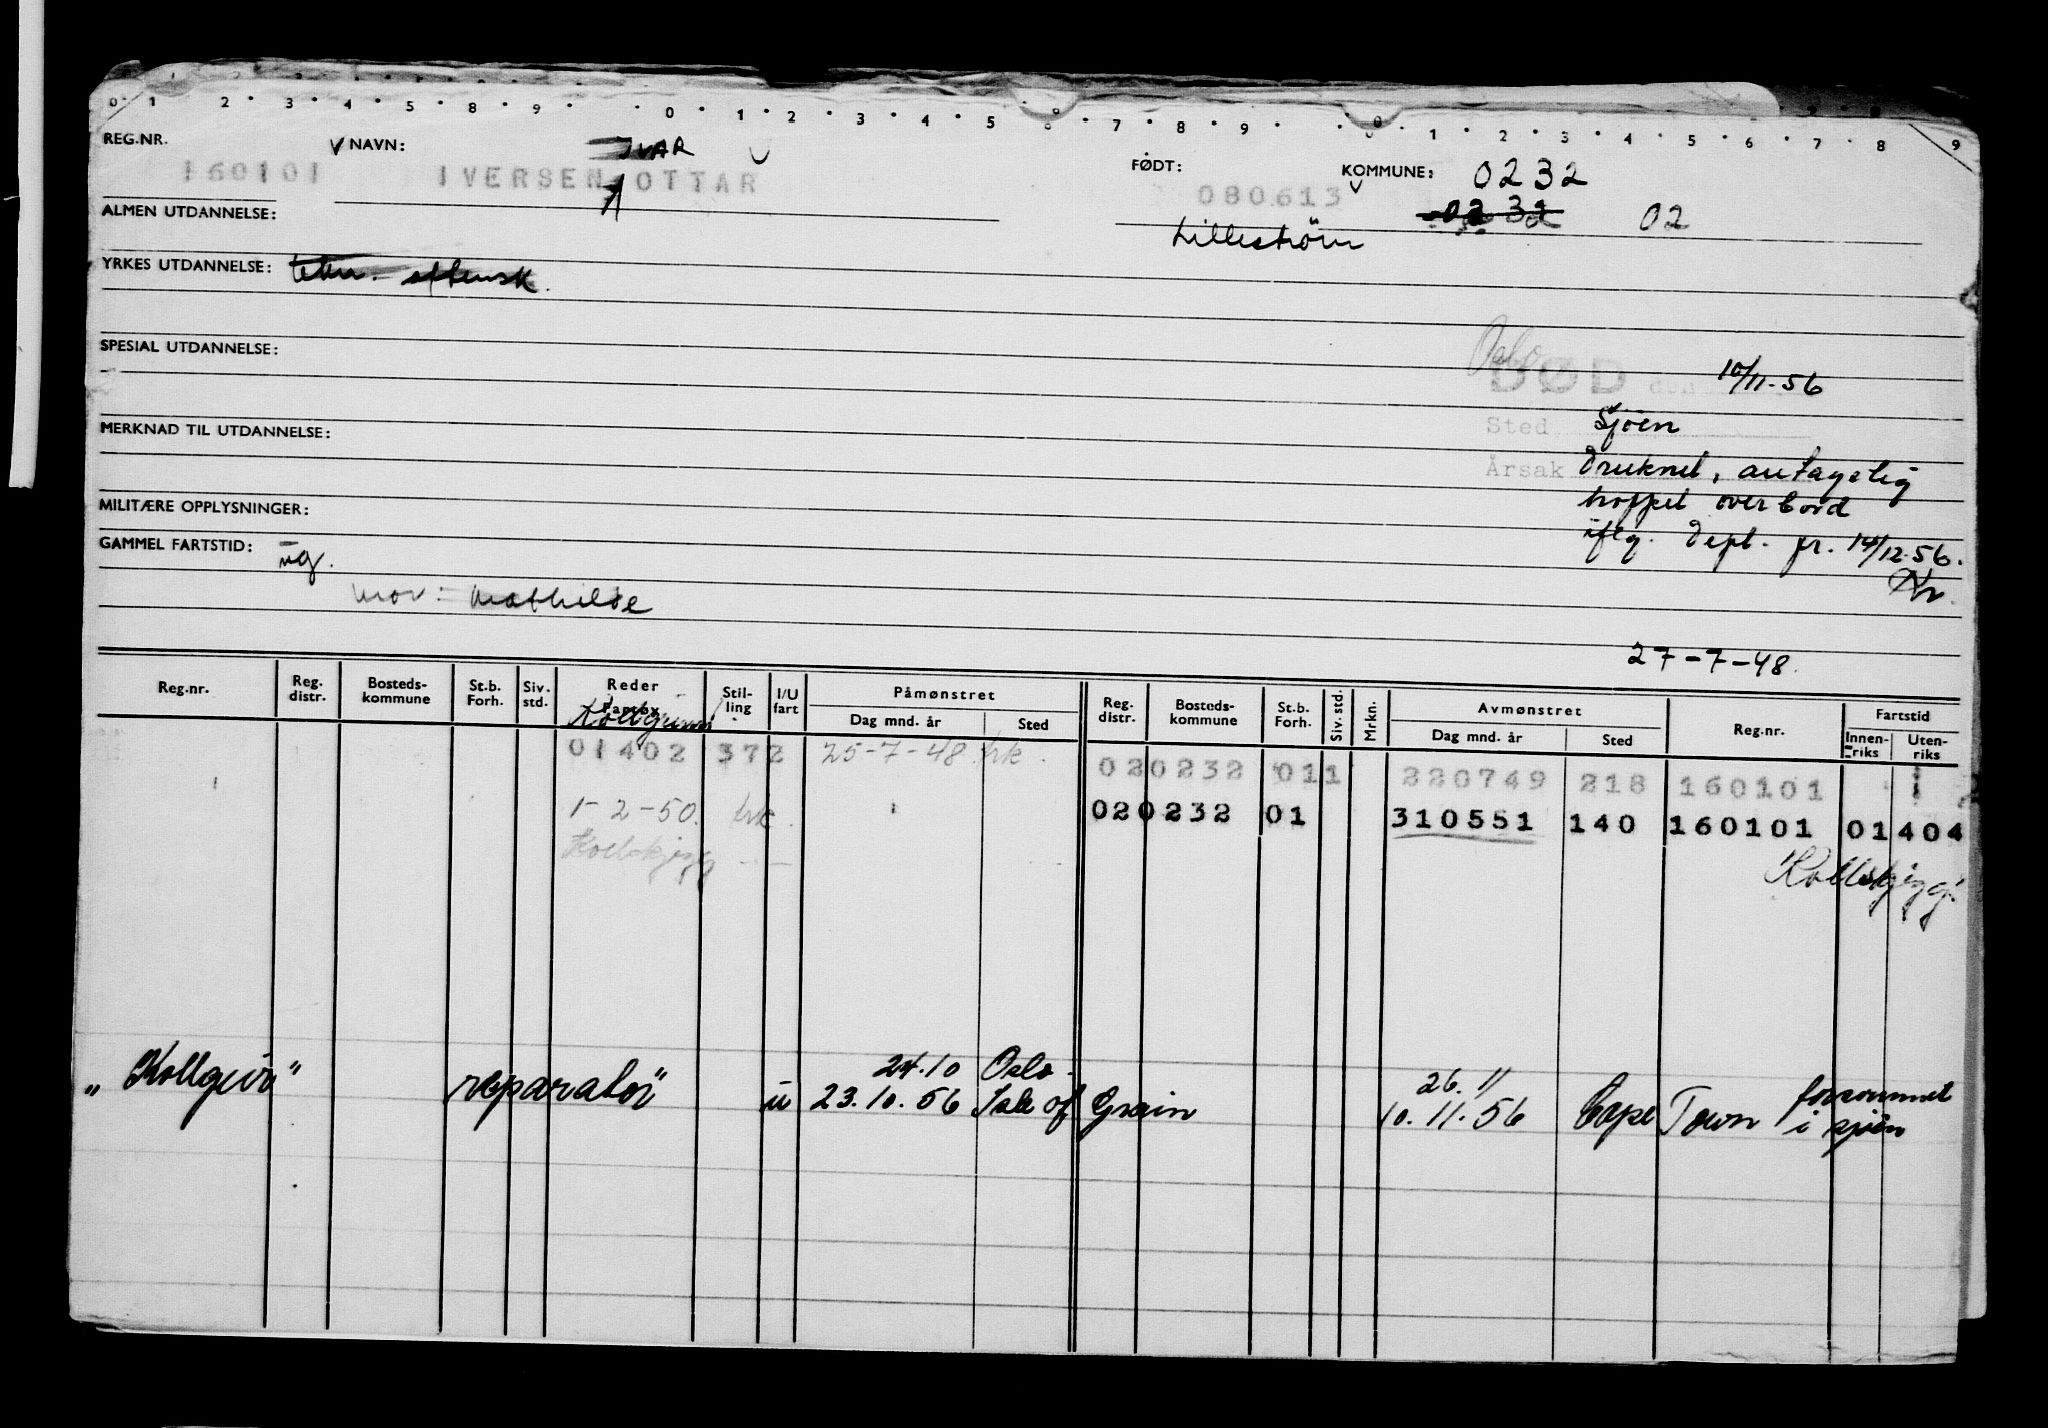 0 1 2 3 4 5 8 9 0 1 2 3 4 5 6 7 8 9 0 1 2 3 4 5 6 7 8 9
REG.NR. NAVN: IVAR FØDT: KOMMUNE: 0232
160101 IVERSEN OTTAR 080613 0232 02
ALMEN UTDANNELSE: Lillestrøm
YRKES UTDANNELSE: tekn. aftensk.
SPESIAL UTDANNELSE: Oslo
DØD den 10/11-56
Sted Sjøen
MERKNAD TIL UTDANNELSE:
Årsak Druknet, antagelig
hoppet overbord
MILITÆRE OPPLYSNINGER:
iflg. Dept. pr. 14/12-56.
GAMMEL FARTSTID: ug.
Kr
mor: Mathilde
27-7-48.
Reg.nr. Reg. distr. Bosteds- kommune St.b. Forh. Siv. std. Reder Fartøy Stil- ling I/U fart Påmønstret Dag mnd. år Sted Reg. distr. Bosteds- kommune St.b. Forh. Siv. std. Mrkn. Avmønstret Dag mnd. år Sted Reg.nr. Fartstid Innen- riks Uten- riks
Kollgeir
01402 372 25-7-48 trk. 020232 011 220749 218 160101
1-2-50. trk. 020232 01 310551 140 160101 01 404
Kollskjegg Kollskjegg
24.10 Oslo 26.11 forsvunnet
"Kollgeir" reparatør u 23.10.56 Isle of Grain 10.11.56 Cape Town i sjøen